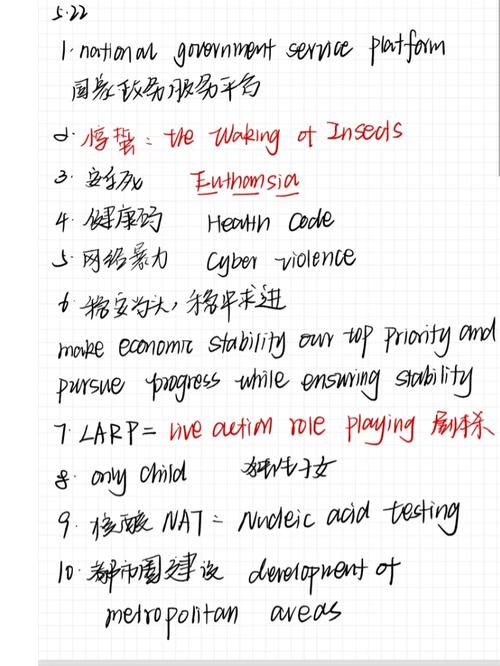 5.22
1. national government service platform
国家政务服务平台
2. 惊蛰: the Waking of Insects
3. 安乐死 Euthamsia
4. 健康码 Health Code
5. 网络暴力 Cyber violence
6. 稳字当头,稳中求进
make economic stability our top priority and
pursue progress while ensuring stability
7. LARP = live action role playing 剧本杀
8. only child 独生子女
9. 核酸 NAT = Nucleic acid testing
10. 都市圈建设 development of
metropolitan areas